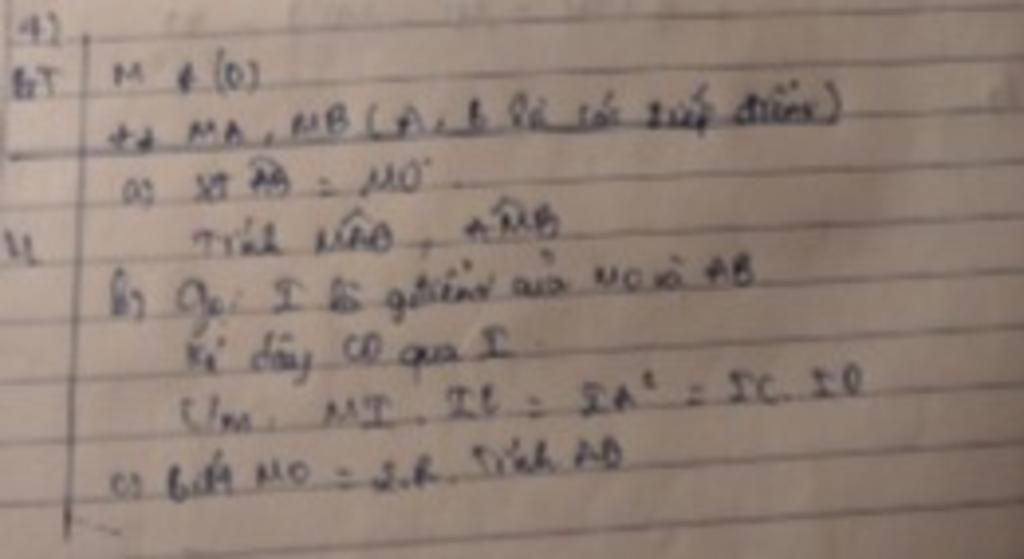 4)
GT M ∉ (O)
tt MA, MB (A, B là các tiếp điểm)
a) sđ AB = 110°
Tính MAB, AMB
b) Gọi I là gđiểm của MO và AB
Kẻ dây CD qua I
C/m. MI. IO = IA² = IC. ID
c) biết MO = 2.R. Tính AB